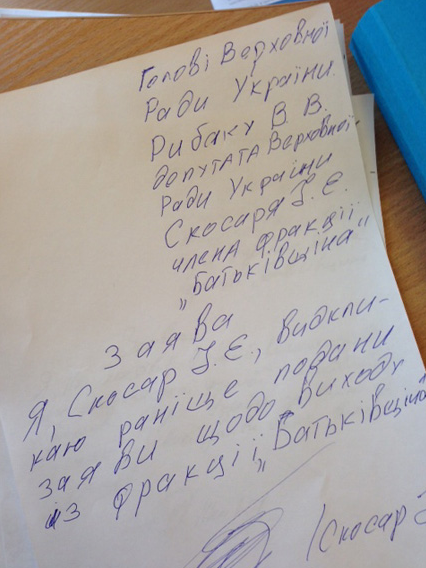 Голові Верховної
Ради України
Рибаку В. В.
депутата Верховної
Ради України
Скосаря І. Є.
члена фракції
„Батьківщіна"
заява
Я, Скосар І. Є., видкли-
каю раніще подани
заяви щодо виходу
из фракції „Батьківщіна"
(Скосар